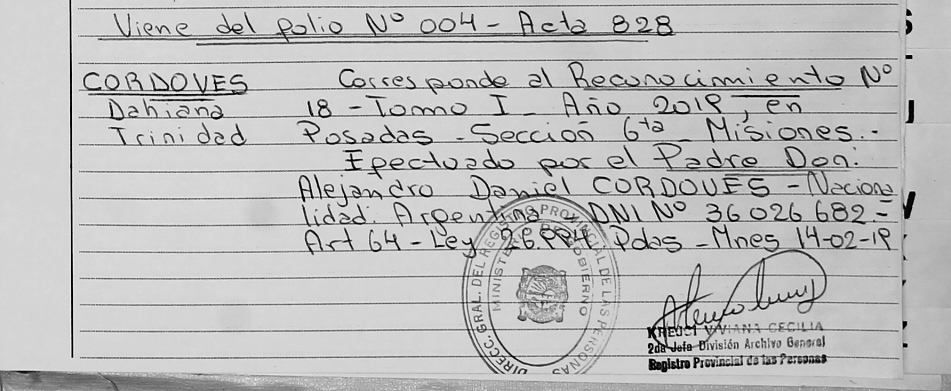 Viene del folio Nº 004 - Acta 828
CORDOVES Corresponde al Reconocimiento Nº
Dahiana 18 - Tomo I - Año 2019, en
Trinidad Posadas - Sección 6ta - Misiones.-
Efectuado por el Padre Don:
Alejandro Daniel CORDOVES - Naciona
lidad: Argentina DNI Nº 36026682 =
Art 64 - Ley 26994 Pdas - Mnes 14-02-19
DIRECC. GRAL. DEL REGISTRO PROVINCIAL DE LAS PERSONAS
MINISTERIO DE GOBIERNO
KREUCI VIVIANA CECILIA
2da Jefa División Archivo General
Registro Provincial de las Personas